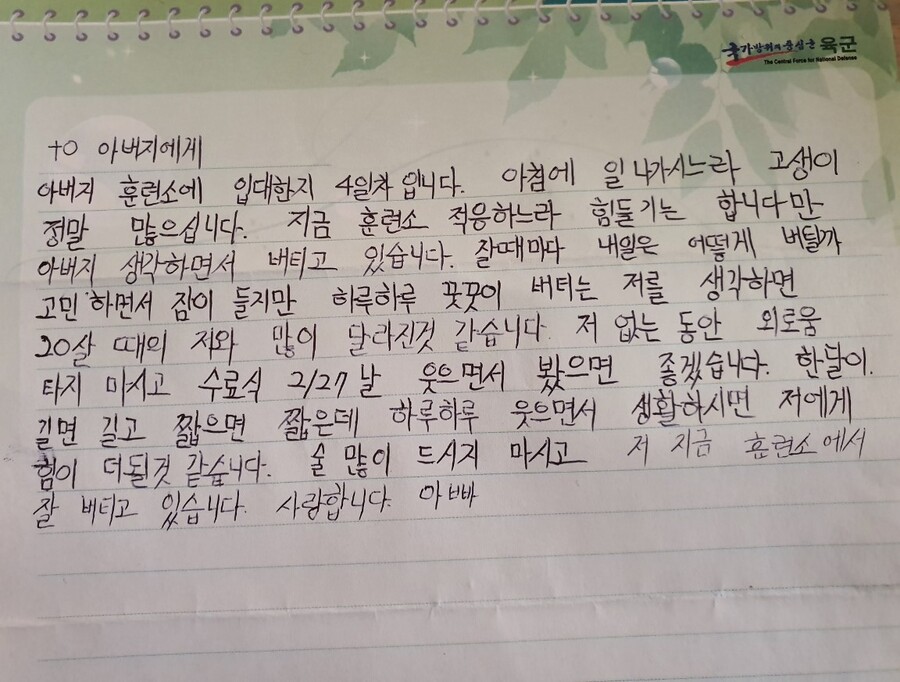 국가방위의 중심군 육군
The Central Force for National Defense
to 아버지에게
아버지 훈련소에 입대한지 4일차 입니다. 아침에 일 나가시느라 고생이
정말 많으십니다. 지금 훈련소 적응하느라 힘들기는 합니다만
아버지 생각하면서 버티고 있습니다. 잘때마다 내일은 어떻게 버틸까
고민 하면서 잠이 들지만 하루하루 꿋꿋이 버티는 저를 생각하면
20살 때의 저와 많이 달라진것 같습니다. 저 없는 동안 외로움
타지 마시고 수료식 2/27날 웃으면서 봤으면 좋겠습니다. 한달이.
길면 길고 짧으면 짧은데 하루하루 웃으면서 생활하시면 저에게
힘이 더 될것 같습니다. 술 많이 드시지 마시고 저 지금 훈련소에서
잘 버티고 있습니다. 사랑합니다. 아빠